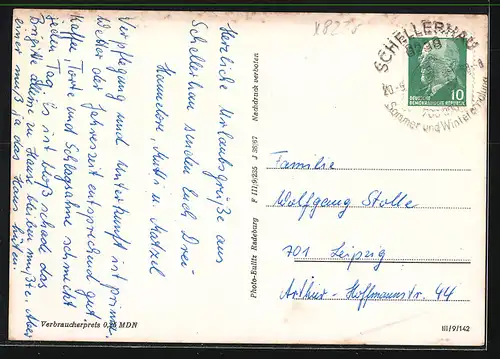 X8225
Herzliche Urlaubsgrüße aus
Schellerhau senden Euch Drei
Hannelore, Mutti u. Matzel
Verpflegung und Unterkunft ist prima.
Wetter der Jahreszeit entsprechend gut
Kaffee Torte und Schlagsahne schmeckt
jeden Tag. Es ist bloß schade das
Brigitte alleine zu Hause bleiben mußte. Aber
einer muß ja das Haus hüten.
Verbraucherpreis 0,20 MDN
Photo-Bullitz Radeburg F III/9/235 J 38/67 Nachdruck verboten
SCHELLERHAU
Sommer und Wintererholung
DEUTSCHE
DEMOKRATISCHE REPUBLIK
10
Familie
Wolfgang Stolle
701 Leipzig
Arthur-Hoffmannstr. 44
III/9/142